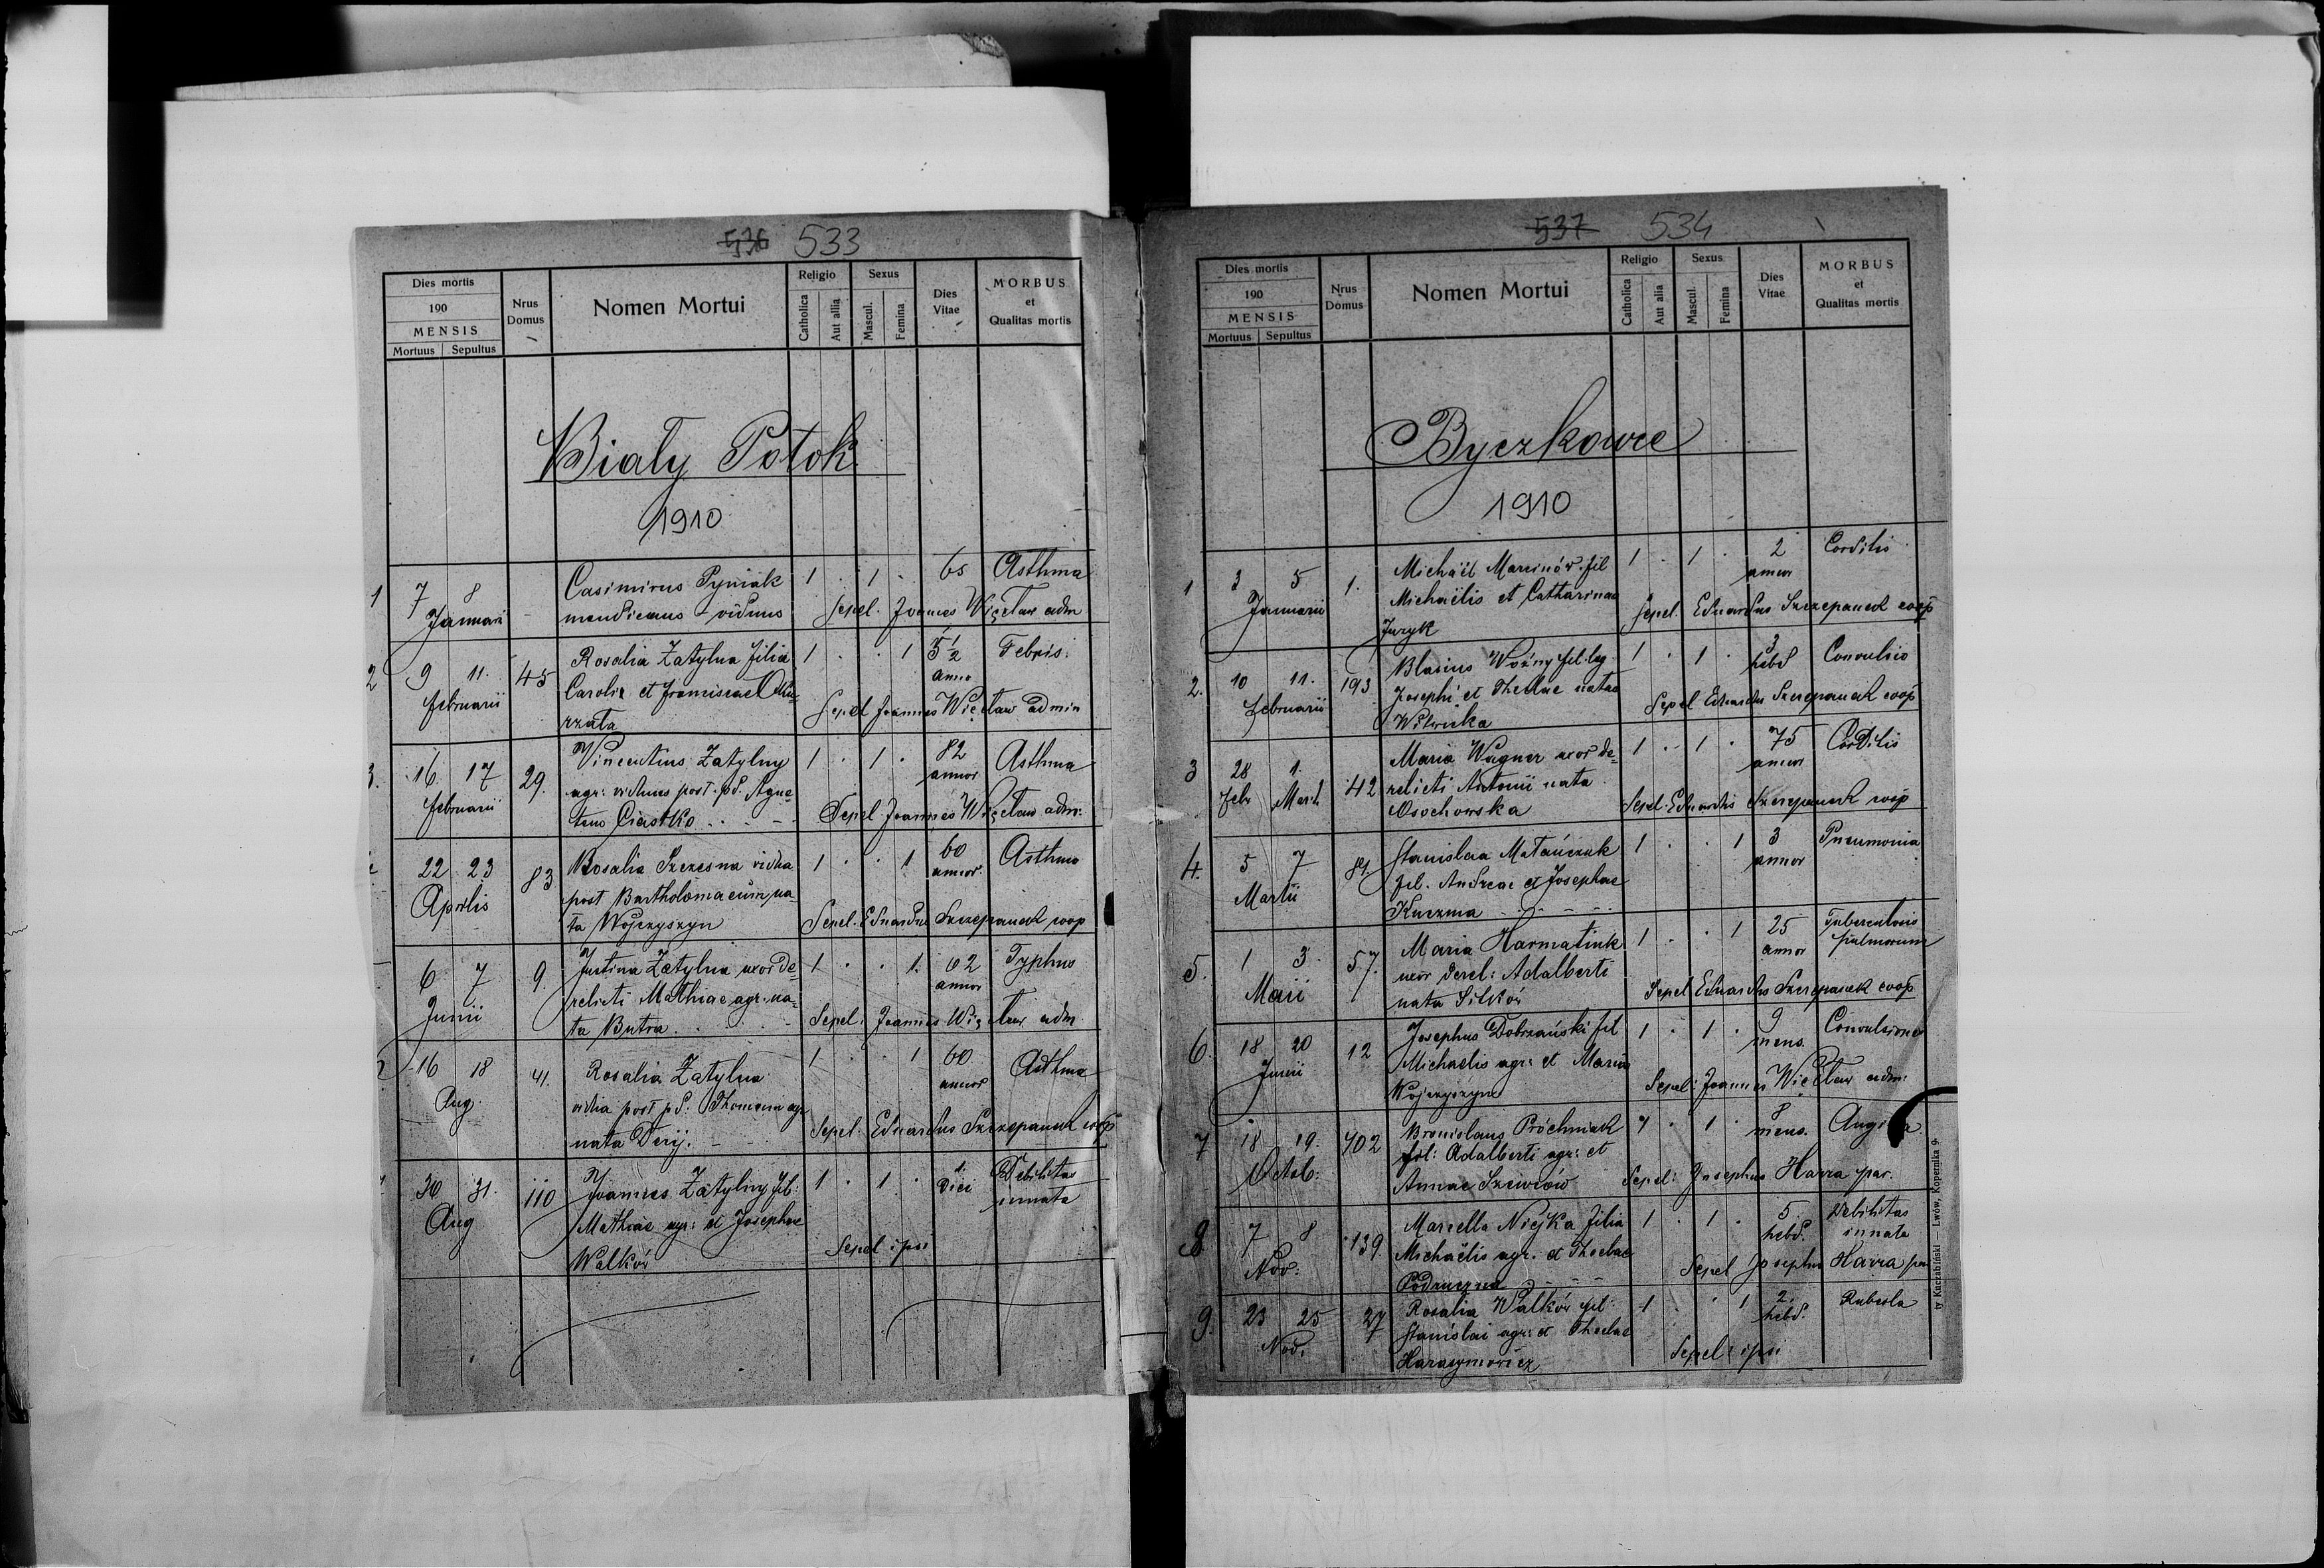 536 533
Dies mortis
190
MENSIS
Mortuus Sepultus
Nrus Domus
Nomen Mortui
Religio
Catholica
Aut alia
Sexus
Mascul.
Femina
Dies Vitae
MORBUS
et
Qualitas mortis
Biały Potok
1910
1 7 8 Casimirus Pyniak 1 . 1 . 65 Asthma
Januarii mendicans - viduus Sepel. Joannes Więcław adm
2 9 11. 45 Rosalia Zatylna filia 1 . . 1 5 1/2 Febris.
Februarii Caroli et Franciscae
anno
rzata Sepel Joannes Więcław admin
3. 16 17 29. Vincentius Zatylny 1 . 1 . 82 Asthma
Februarii agr: viduus post. pd. Agne-
annor
tem Ciastko . . - - Sepel Joannes Więcław adm:
22 23 83 Rosalia Szczesna vidua 1 . . 1 60 Asthma
Aprilis post Bartholomaeum, na-
annor.
ta Wojczyszyn Sepel. Eduardus Szczepanek coop
6 7 9. Justina Zatylna uxor de- 1 . . 1. 62 Typhus
Junii relicti Mathiae agr. na-
annor
ta Butra . . . . - Sepel. Joannes Więcław adm
16 18 41. Rosalia Zatylna 1 . . 1 60 Asthma
Aug. vidua post pd. Thomam agr
annor
nata Derij. - Sepel. Eduardus Szczepanek coop
30 31. 110 Joannes Zatylny fil: 1 . 1 . 1. Debilitas
Aug Mathiae agr: et Josephae
diei innata
Walków Sepel ipsi
537 534
Dies mortis
190
MENSIS
Mortuus Sepultus
Nrus Domus
Nomen Mortui
Religio
Catholica
Aut alia
Sexus
Mascul.
Femina
Dies Vitae
MORBUS
et
Qualitas mortis
Byczkowce
1910
1 3 5 1. Michaël Marcinów. fil 1 . 1 . 2
Januarii Michaëlis et Catharinae
annor
Juzyk Sepel. Eduardus Szczepanek coop
2. 10 11. 193 Blasius Woźny fil. leg. 1 . 1 . 3 Convulsio
Februarii Josephi et Theclae natae
hebd
Sepel Eduardus Szczepanek coop
3 28 1. 42 Maria Wagner uxor de- 1 . 1 . 75
Febr Marti relicti Antonii nata
annor
Osochowska Sepel. Eduardus Szczepanek coop
4. 5 7 81. Stanislaa Matańczuk 1 . . 1 3 Pneumonia
Martii fil. Andreae et Josephae
annor
Kuczma - - - - -
5. 1 3. 57. Maria Harmatiuk 1 . . 1 25 Tuberculosis
Maii uxor derel: Adalberti
annor pulmorum
nata Silków Sepel Eduardus Szczepanek coop
6. 18 20 12 Josephus Dobrzański fil 1 . 1 . 9 Convulsiones
Junii Michaelis agr: et Mariae
mens.
Wojczyszyn Sepel: Joannes Więcław adm:
7 18 19. 102 Bronislaus Próchniak 1 . 1 . 8
Octob: fil: Adalberti agr: et
mens.
Annae Szewców Sepel: Josephus Harra par.
8. 7 8 139 Marcella Niejka filia 1 . 1 . 5. Debilitas
Nov: Michaëlis agr. et Theclae
hebd. innata
Podruczna - - - Sepel Josephus Harra par
9. 23 25 27 Rosalia Walków fil: 1 . . 1 2. Rubeola
Nov. Stanislai agr: et Theclae
hebd.
Harasymowicz Sepel: ipsi
ty Kuczabiński — Lwów, Kopernika 9.